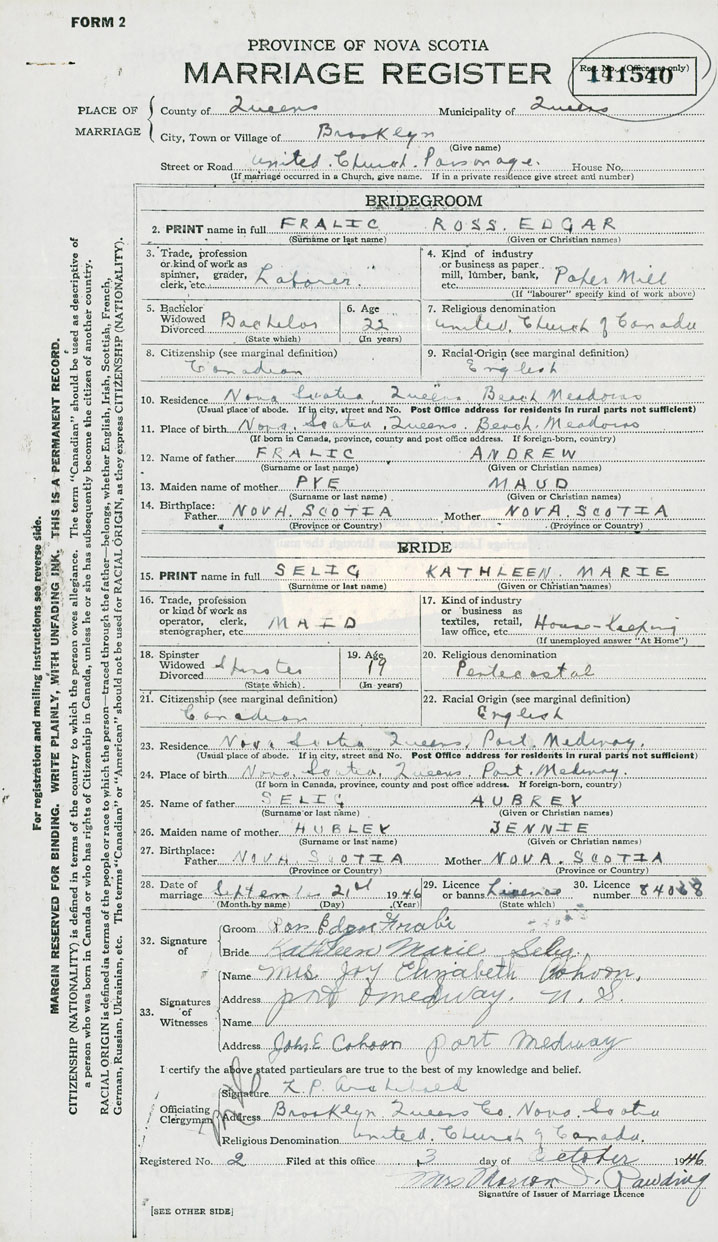 FORM 2
PROVINCE OF NOVA SCOTIA
MARRIAGE REGISTER
Reg. No. (Office use only)
141540
PLACE OF MARRIAGE
County of Queens Municipality of Queens
City, Town or Village of Brooklyn
(Give name)
Street or Road United Church Parsonage. House No.
(If marriage occurred in a Church, give name. If in a private residence give street and number)
BRIDEGROOM
2. PRINT name in full FRALIC ROSS EDGAR
(Surname or last name) (Given or Christian names)
3. Trade, profession or kind of work as spinner, grader, clerk, etc. Laborer
4. Kind of industry or business as paper mill, lumber, bank, etc. Paper Mill
(If "labourer" specify kind of work above)
5. Bachelor Widowed Divorced Bachelor
(State which)
6. Age 22
(In years)
7. Religious denomination
United Church of Canada
8. Citizenship (see marginal definition)
Canadian
9. Racial Origin (see marginal definition)
English
10. Residence Nova Scotia Queens Beach Meadows
(Usual place of abode. If in city, street and No. Post Office address for residents in rural parts not sufficient)
11. Place of birth Nova Scotia Queens Beach Meadows
(If born in Canada, province, county and post office address. If foreign-born, country)
12. Name of father FRALIC ANDREW
(Surname or last name) (Given or Christian names)
13. Maiden name of mother PYE MAUD
(Surname or last name) (Given or Christian names)
14. Birthplace: Father NOVA SCOTIA Mother NOVA SCOTIA
(Province or Country) (Province or Country)
BRIDE
15. PRINT name in full SELIG KATHLEEN MARIE
(Surname or last name) (Given or Christian names)
16. Trade, profession or kind of work as operator, clerk, stenographer, etc. MAID
17. Kind of industry or business as textiles, retail, law office, etc. House-keeping
(If unemployed answer "At Home")
18. Spinster Widowed Divorced Spinster
(State which)
19. Age 19
(In years)
20. Religious denomination
Pentecostal
21. Citizenship (see marginal definition)
Canadian
22. Racial Origin (see marginal definition)
English
23. Residence Nova Scotia Queens, Port Medway.
(Usual place of abode. If in city, street and No. Post Office address for residents in rural parts not sufficient)
24. Place of birth Nova Scotia, Queens, Port Medway.
(If born in Canada, province, county and post office address. If foreign-born, country)
25. Name of father SELIG AUBREY
(Surname or last name) (Given or Christian names)
26. Maiden name of mother HUBLEY JENNIE
(Surname or last name) (Given or Christian names)
27. Birthplace: Father NOVA SCOTIA Mother NOVA SCOTIA
(Province or Country) (Province or Country)
28. Date of marriage September 21st 1946
(Month by name) (Day) (Year)
29. Licence or banns Licence
(State which)
30. Licence number
32. Signature of
Groom Ross Edgar
Bride Kathleen Marie Selig
33. Signatures of Witnesses
Name Mrs Joy Elizabeth Cohoon.
Address Port Medway. N. S.
Name
Address John E Cohoon Port Medway
I certify the above stated particulars are true to the best of my knowledge and belief.
Officiating Clergyman
Signature L. P. Archibald
Address Brooklyn Queens Co. Nova Scotia
Religious Denomination United Church of Canada.
Registered No. 2 Filed at this office 3 day of October 1946
Mrs Marion
Signature of Issuer of Marriage Licence
[SEE OTHER SIDE]
For registration and mailing instructions see reverse side.
MARGIN RESERVED FOR BINDING. WRITE PLAINLY, WITH UNFADING INK. THIS IS A PERMANENT RECORD.
CITIZENSHIP (NATIONALITY) is defined in terms of the country to which the person owes allegiance. The term "Canadian" should be used as descriptive of
a person who was born in Canada or who has rights of Citizenship in Canada, unless he or she has subsequently become the citizen of another country.
RACIAL ORIGIN is defined in terms of the people or race to which the person—traced through the father—belongs, whether English, Irish, Scottish, French,
German, Russian, Ukrainian, etc. The terms "Canadian" or "American" should not be used for RACIAL ORIGIN, as they express CITIZENSHIP (NATIONALITY).